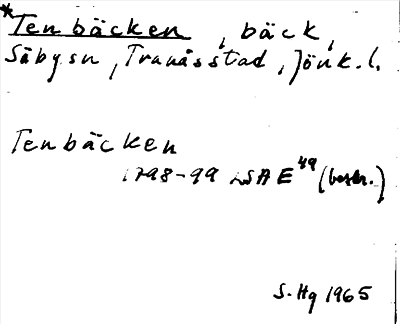 *Tenbäcken, bäck,
Säby sn, Tranås stad, Jönk. l.
Tenbäcken
1798-99 LSA E 49 (beskr.)
S. Hg 1965